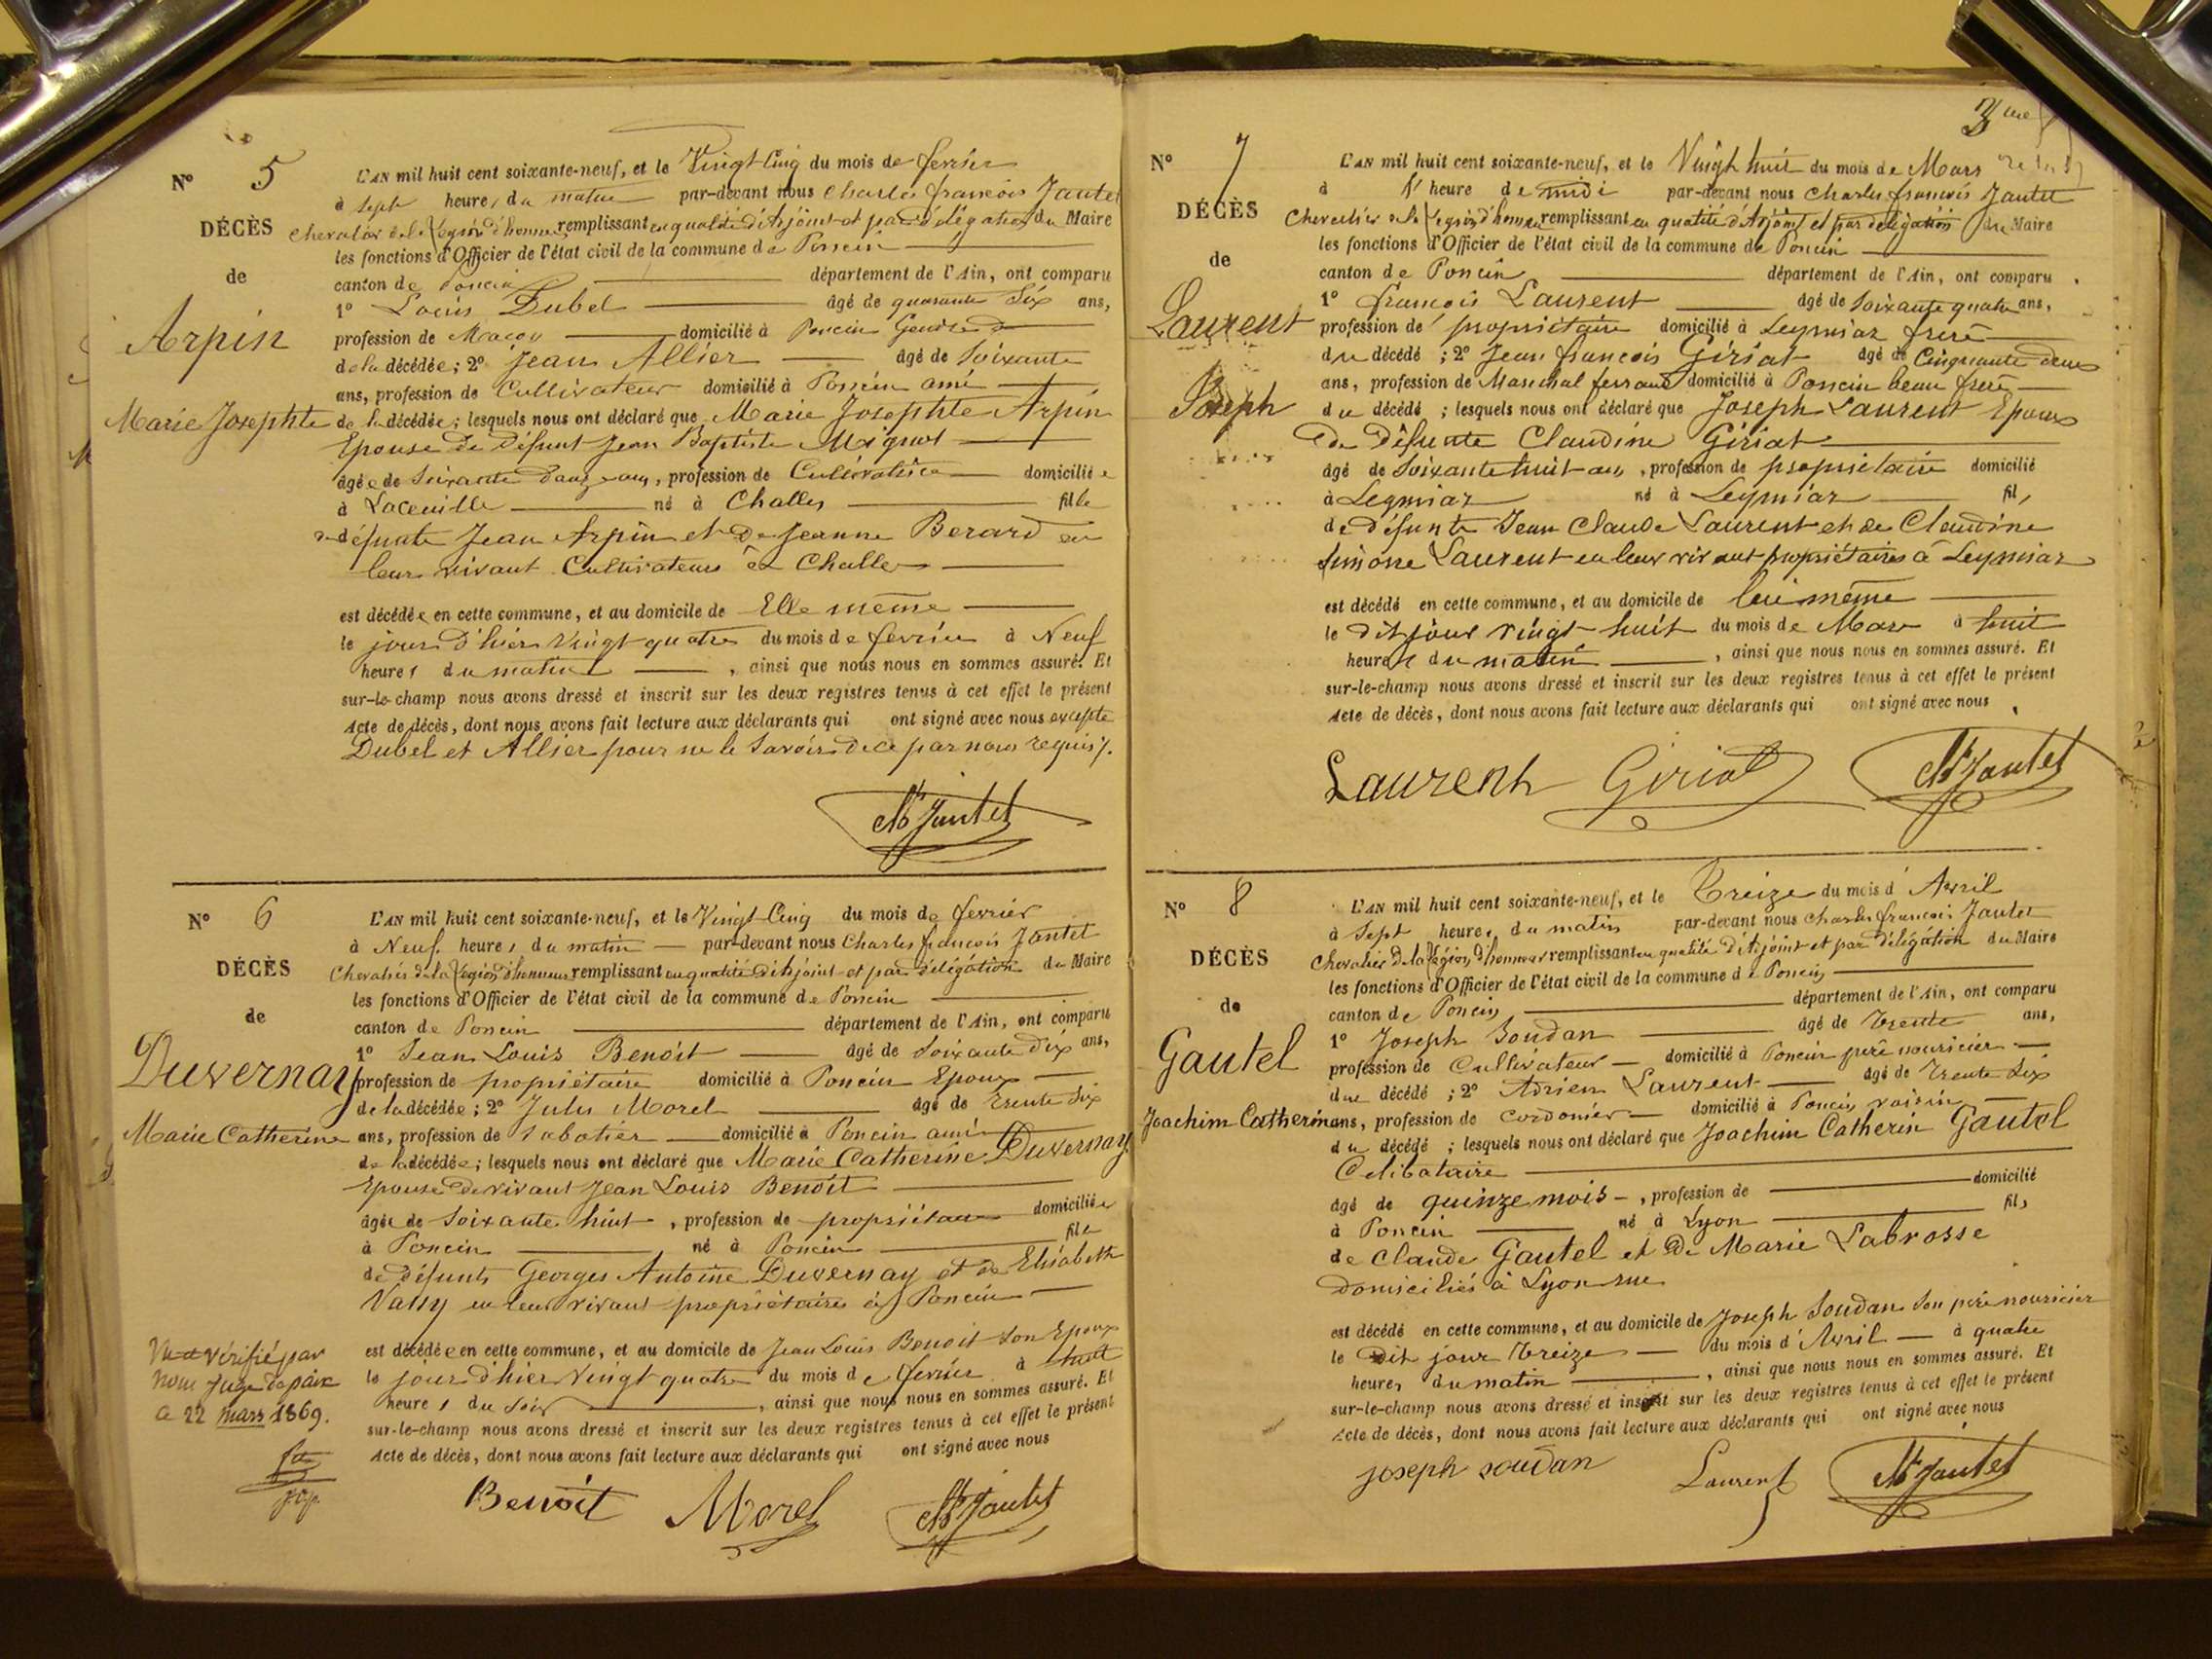 N° 5
DÉCÈS
de
Arpin
Marie Josephte
L'AN mil huit cent soixante-neuf, et le Vingt Cinq du mois de fevrier
à Sept heures du matin par-devant nous Charles francois Jantet
Chevalier de la Legion d'honneur remplissant en qualité d'Adjoint et par délégation du Maire
les fonctions d'Officier de l'état civil de la commune de Poncin
canton de Poncin département de l'Ain, ont comparu
1° Louis Dubel âgé de quarante Six ans,
profession de Maçon domicilié à Poncin Gendre
de la décédée; 2° Jean Allier âgé de Soixante
ans, profession de Cultivateur domicilié à Poncin ami
de la décédée; lesquels nous ont déclaré que Marie Josephte Arpin
Epouse de Défunt Jean Baptiste Mignot
âgée de Soixante Douze ans, profession de Cultivatrice domiciliée
à Laceuille né à Challes fille
de défunts Jean Arpin et de Jeanne Berard en
leur vivant Cultivateurs à Challes
est décédée en cette commune, et au domicile de Elle même
le jour d'hier Vingt quatre du mois de fevrier à Neuf
heures du matin, ainsi que nous nous en sommes assuré. Et
sur-le-champ nous avons dressé et inscrit sur les deux registres tenus à cet effet le présent
Acte de décès, dont nous avons fait lecture aux déclarants qui ont signé avec nous excepté
Dubel et Allier pour ne le Savoir de ce par nous requis.
Ch Jantet
N° 6
DÉCÈS
de
Duvernay
Marie Catherine
L'AN mil huit cent soixante-neuf, et le Vingt Cinq du mois de fevrier
à Neuf heures du matin par-devant nous Charles francois Jantet
Chevalier de la Legion d'honneur remplissant en qualité d'Adjoint et par délégation du Maire
les fonctions d'Officier de l'état civil de la commune de Poncin
canton de Poncin département de l'Ain, ont comparu
1° Jean Louis Benoit âgé de Soixante Dix ans,
profession de propriétaire domicilié à Poncin Epoux
de la décédée; 2° Jules Morel âgé de Trente Six
ans, profession de Sabotier domicilié à Poncin ami
de la décédée; lesquels nous ont déclaré que Marie Catherine Duvernay
Epouse de vivant Jean Louis Benoit
âgée de Soixante huit, profession de propriétaire domiciliée
à Poncin né à Poncin fille
de défunts Georges Antoine Duvernay et de Elisabeth
Vally en leur vivant propriétaires à Poncin
est décédée en cette commune, et au domicile de Jean Louis Benoit Son Epoux
le jour d'hier Vingt quatre du mois de fevrier à huit
heures du Soir, ainsi que nous nous en sommes assuré. Et
sur-le-champ nous avons dressé et inscrit sur les deux registres tenus à cet effet le présent
Acte de décès, dont nous avons fait lecture aux déclarants qui ont signé avec nous
Vu et vérifié par
Nous Juge de paix
Ce 22 mars 1869.
Benoit Morel Ch Jantet
3me
N° 7
DÉCÈS
de
Laurent
Joseph
L'AN mil huit cent soixante-neuf, et le Vingt huit du mois de Mars
à 1 heure de midi par-devant nous Charles francois Jantet
Chevalier de la Legion d'honneur remplissant en qualité d'Adjoint et par délégation du Maire
les fonctions d'Officier de l'état civil de la commune de Poncin
canton de Poncin département de l'Ain, ont comparu
1° francois Laurent âgé de Soixante quatre ans,
profession de propriétaire domicilié à Leymiaz frere
du décédé; 2° Jean francois Giriat âgé de Cinquante deux
ans, profession de Marechal ferrant domicilié à Poncin beau frere
du décédé; lesquels nous ont déclaré que Joseph Laurent Epoux
de Défunte Claudine Giriat
âgé de Soixante huit ans, profession de propriétaire domicilié
à Leymiaz né à Leymiaz fils
de défunts Jean Claude Laurent et de Claudine
Simone Laurent en leur vivant propriétaires à Leymiaz
est décédé en cette commune, et au domicile de lui même
le dit jour vingt huit du mois de Mars à huit
heures du matin, ainsi que nous nous en sommes assuré. Et
sur-le-champ nous avons dressé et inscrit sur les deux registres tenus à cet effet le présent
Acte de décès, dont nous avons fait lecture aux déclarants qui ont signé avec nous
Laurent Giriat Ch Jantet
N° 8
DÉCÈS
de
Gautel
Joachim Catherin
L'AN mil huit cent soixante-neuf, et le Treize du mois d'Avril
à Sept heures du matin par-devant nous Charles francois Jantet
Chevalier de la Légion d'honneur remplissant en qualité d'Adjoint et par délégation du Maire
les fonctions d'Officier de l'état civil de la commune de Poncin
canton de Poncin département de l'Ain, ont comparu
1° Joseph Soudan âgé de Trente ans,
profession de Cultivateur domicilié à Poncin père nouricier
du décédé; 2° Adrien Laurent âgé de Trente Six
ans, profession de cordonier domicilié à Poncin voisin
du décédé; lesquels nous ont déclaré que Joachim Catherin Gautel
Celibataire
âgé de quinze mois, profession de domicilié
à Poncin né à Lyon fils
de Claude Gautel et de Marie Labrosse
domiciliés à Lyon rue
est décédé en cette commune, et au domicile de Joseph Soudan Son père nouricier
le Dit jour Treize du mois d'Avril à quatre
heures du matin, ainsi que nous nous en sommes assuré. Et
sur-le-champ nous avons dressé et inscrit sur les deux registres tenus à cet effet le présent
Acte de décès, dont nous avons fait lecture aux déclarants qui ont signé avec nous
joseph soudan Laurent Ch Jantet